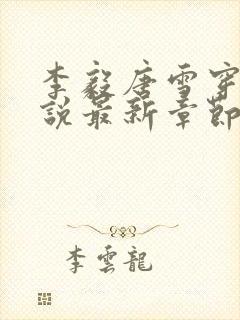 李毅唐雪穿
說最新章節
李雲龍